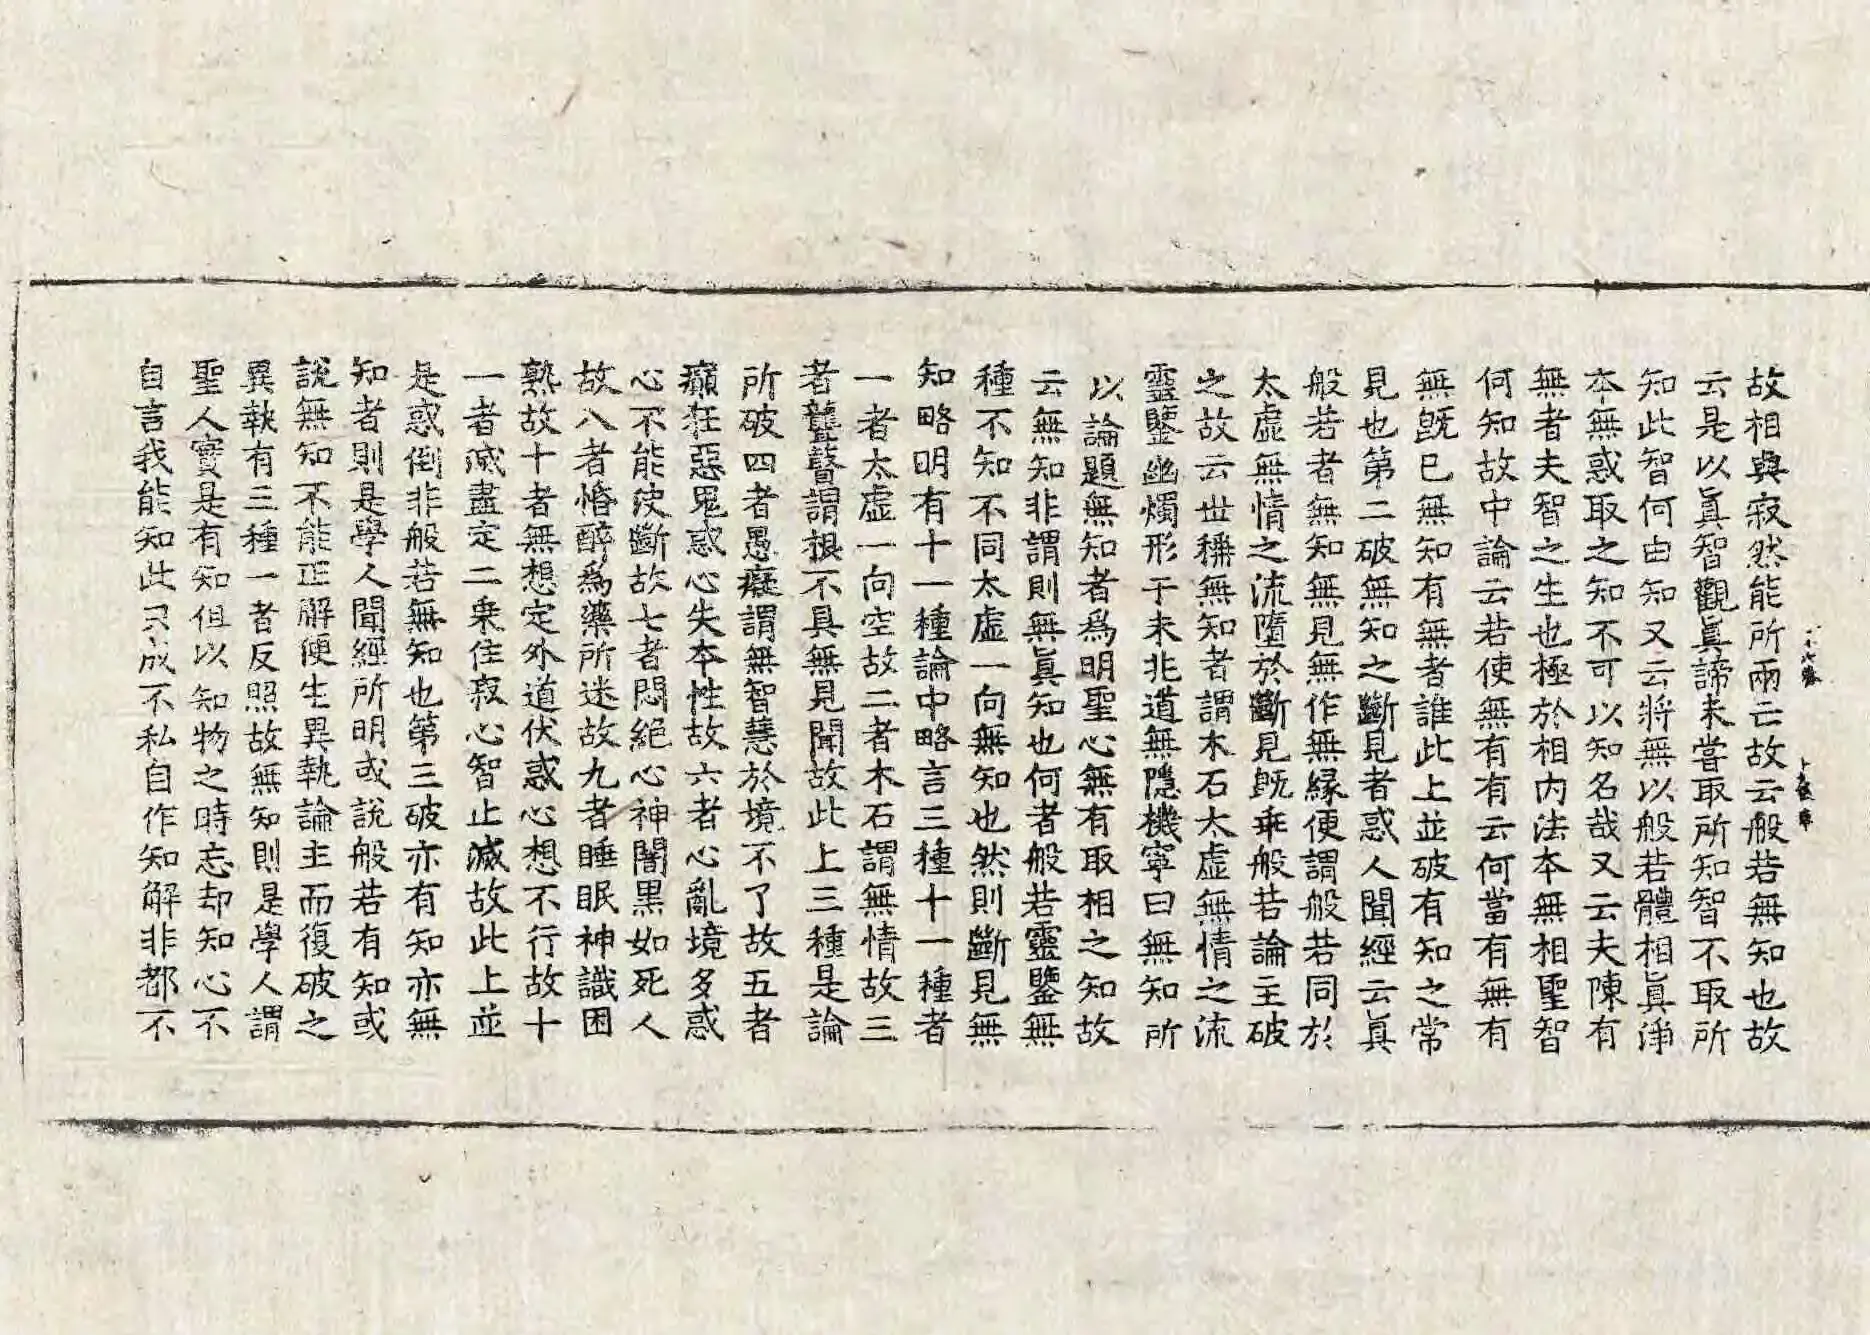 故相與寂然能所兩亡故云般若無知也故
云是以眞智觀眞諦未嘗取所知智不取所
知此智何由知又云將無以般若體相眞淨
本無惑取之知不可以知名哉又云夫陳有
無者夫智之生也極於相内法本無相聖智
何知故中論云若使無有有云何當有無有
無旣已無知有無者誰此上並破有知之常
見也第二破無知之斷見者惑人聞經云眞
般若者無知無見無作無縁便謂般若同於
太虛無情之流墮於斷見旣乖般若論主破
之故云世稱無知者謂木石太虛無情之流
靈鑒幽燭形于未兆道無隱機寧曰無知所
以論題無知者爲明聖心無有取相之知故
云無知非謂則無眞知也何者般若靈鑒無
種不知不同太虛一向無知也然則斷見無
知略明有十一種論中略言三種十一種者
一者太虛一向空故二者木石謂無情故三
者聾瞽謂根不具無見聞故此上三種是論
所破四者愚癡謂無智慧於境不了故五者
癲狂惡鬼惑心失本性故六者心亂境多惑
心不能決斷故七者悶絕心神闇黑如死人
故八者惛醉爲藥所迷故九者睡眠神識困
熟故十者無想定外道伏惑心想不行故十
一者滅盡定二乘住寂心智止滅故此上並
是惑倒非般若無知也第三破亦有知亦無
知者則是學人聞經所明或說般若有知或
說無知不能正解便生異執論主而復破之
異執有三種一者反照故無知則是學人謂
聖人實是有知但以知物之時忘却知心不
自言我能知此只成不私自作知解非都不